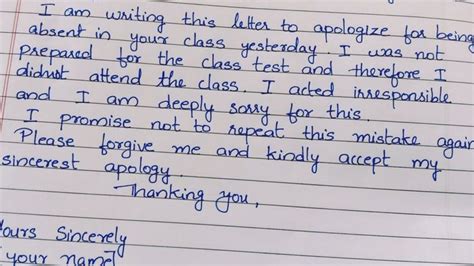 I am writing this letter to apologize for being
absent in your class yesterday. I was not
prepared for the class test and therefore I
didnot attend the class. I acted irresponsible
and I am deeply sorry for this.
I promise not to repeat this mistake again
Please forgive me and kindly accept my
sincerest apology.
Thanking you,
Yours Sincerely
[your name]